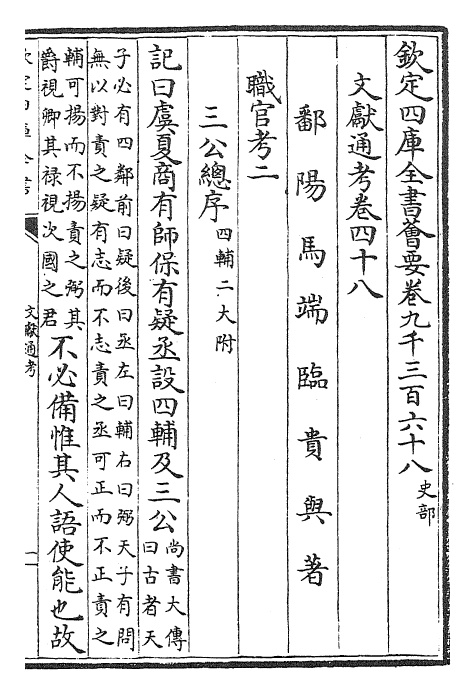 欽定四庫全書薈要卷九千三百六十八 史部
文獻通考卷四十八
鄱陽馬端臨貴與著
職官考二
三公總序 四輔二大附
記曰虞夏商有師保有疑丞設四輔及三公 尚書大傳
曰古者天
子必有四鄰前曰疑後曰丞左曰輔右曰弼天子有問
無以對責之疑有志而不志責之丞可正而不正責之
輔可揚而不揚責之弼其
爵視卿其禄視次國之君 不必備惟其人語使能也故
文獻通考
一